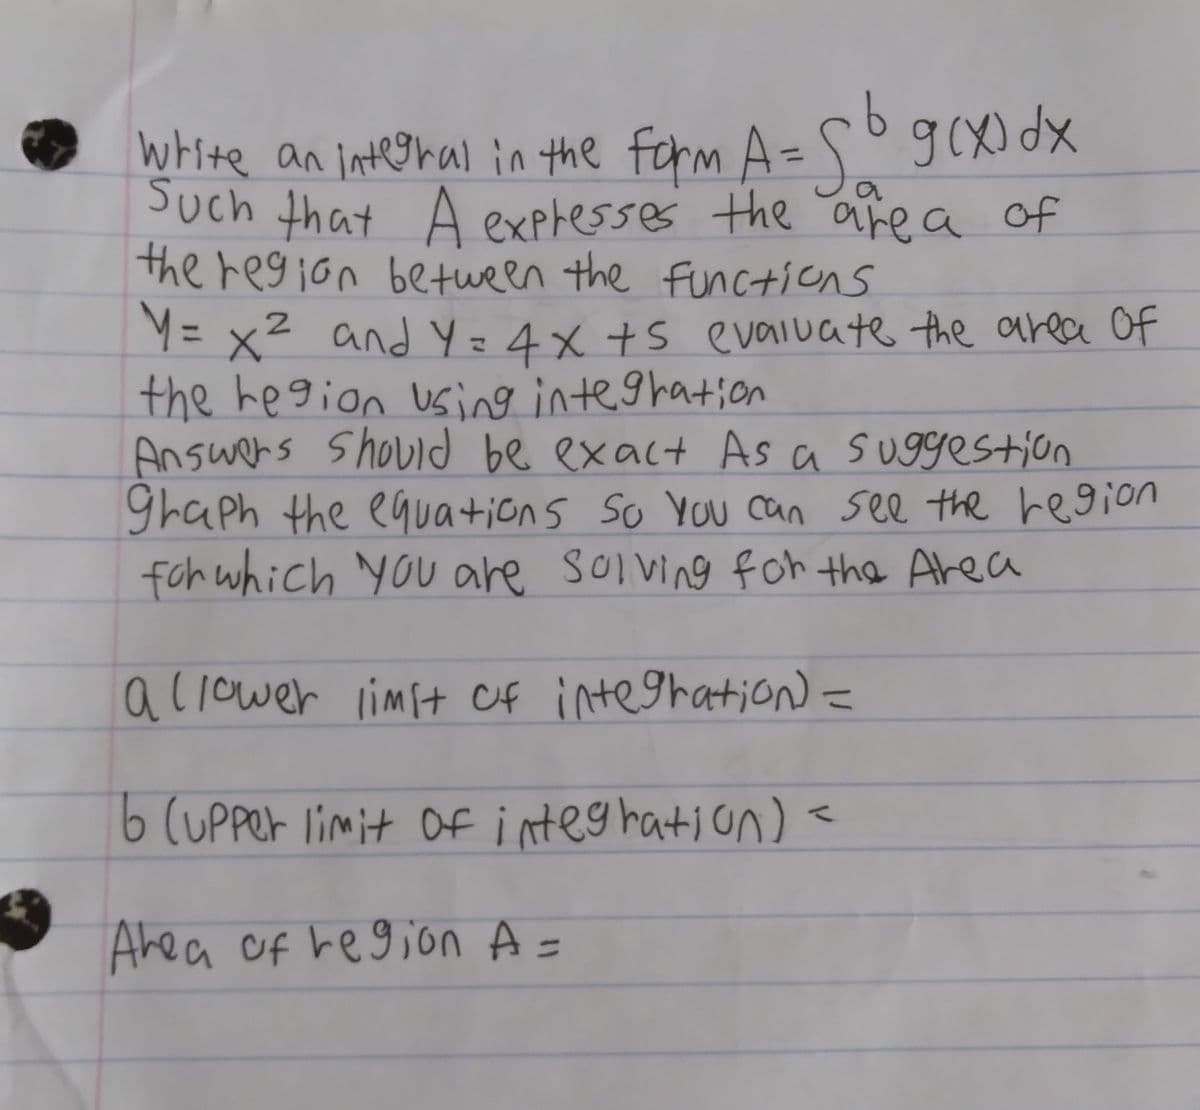 Write an integral in the form A = ∫ₐᵇ g(x) dx
Such that A expresses the area of
the region between the functions
Y = x² and Y = 4x + 5 evaluate the area of
the region using integration
Answers should be exact As a suggestion
graph the equations so you can see the region
for which you are solving for the Area
a (lower limit of integration) =
b (upper limit of integration) =
Area of region A =